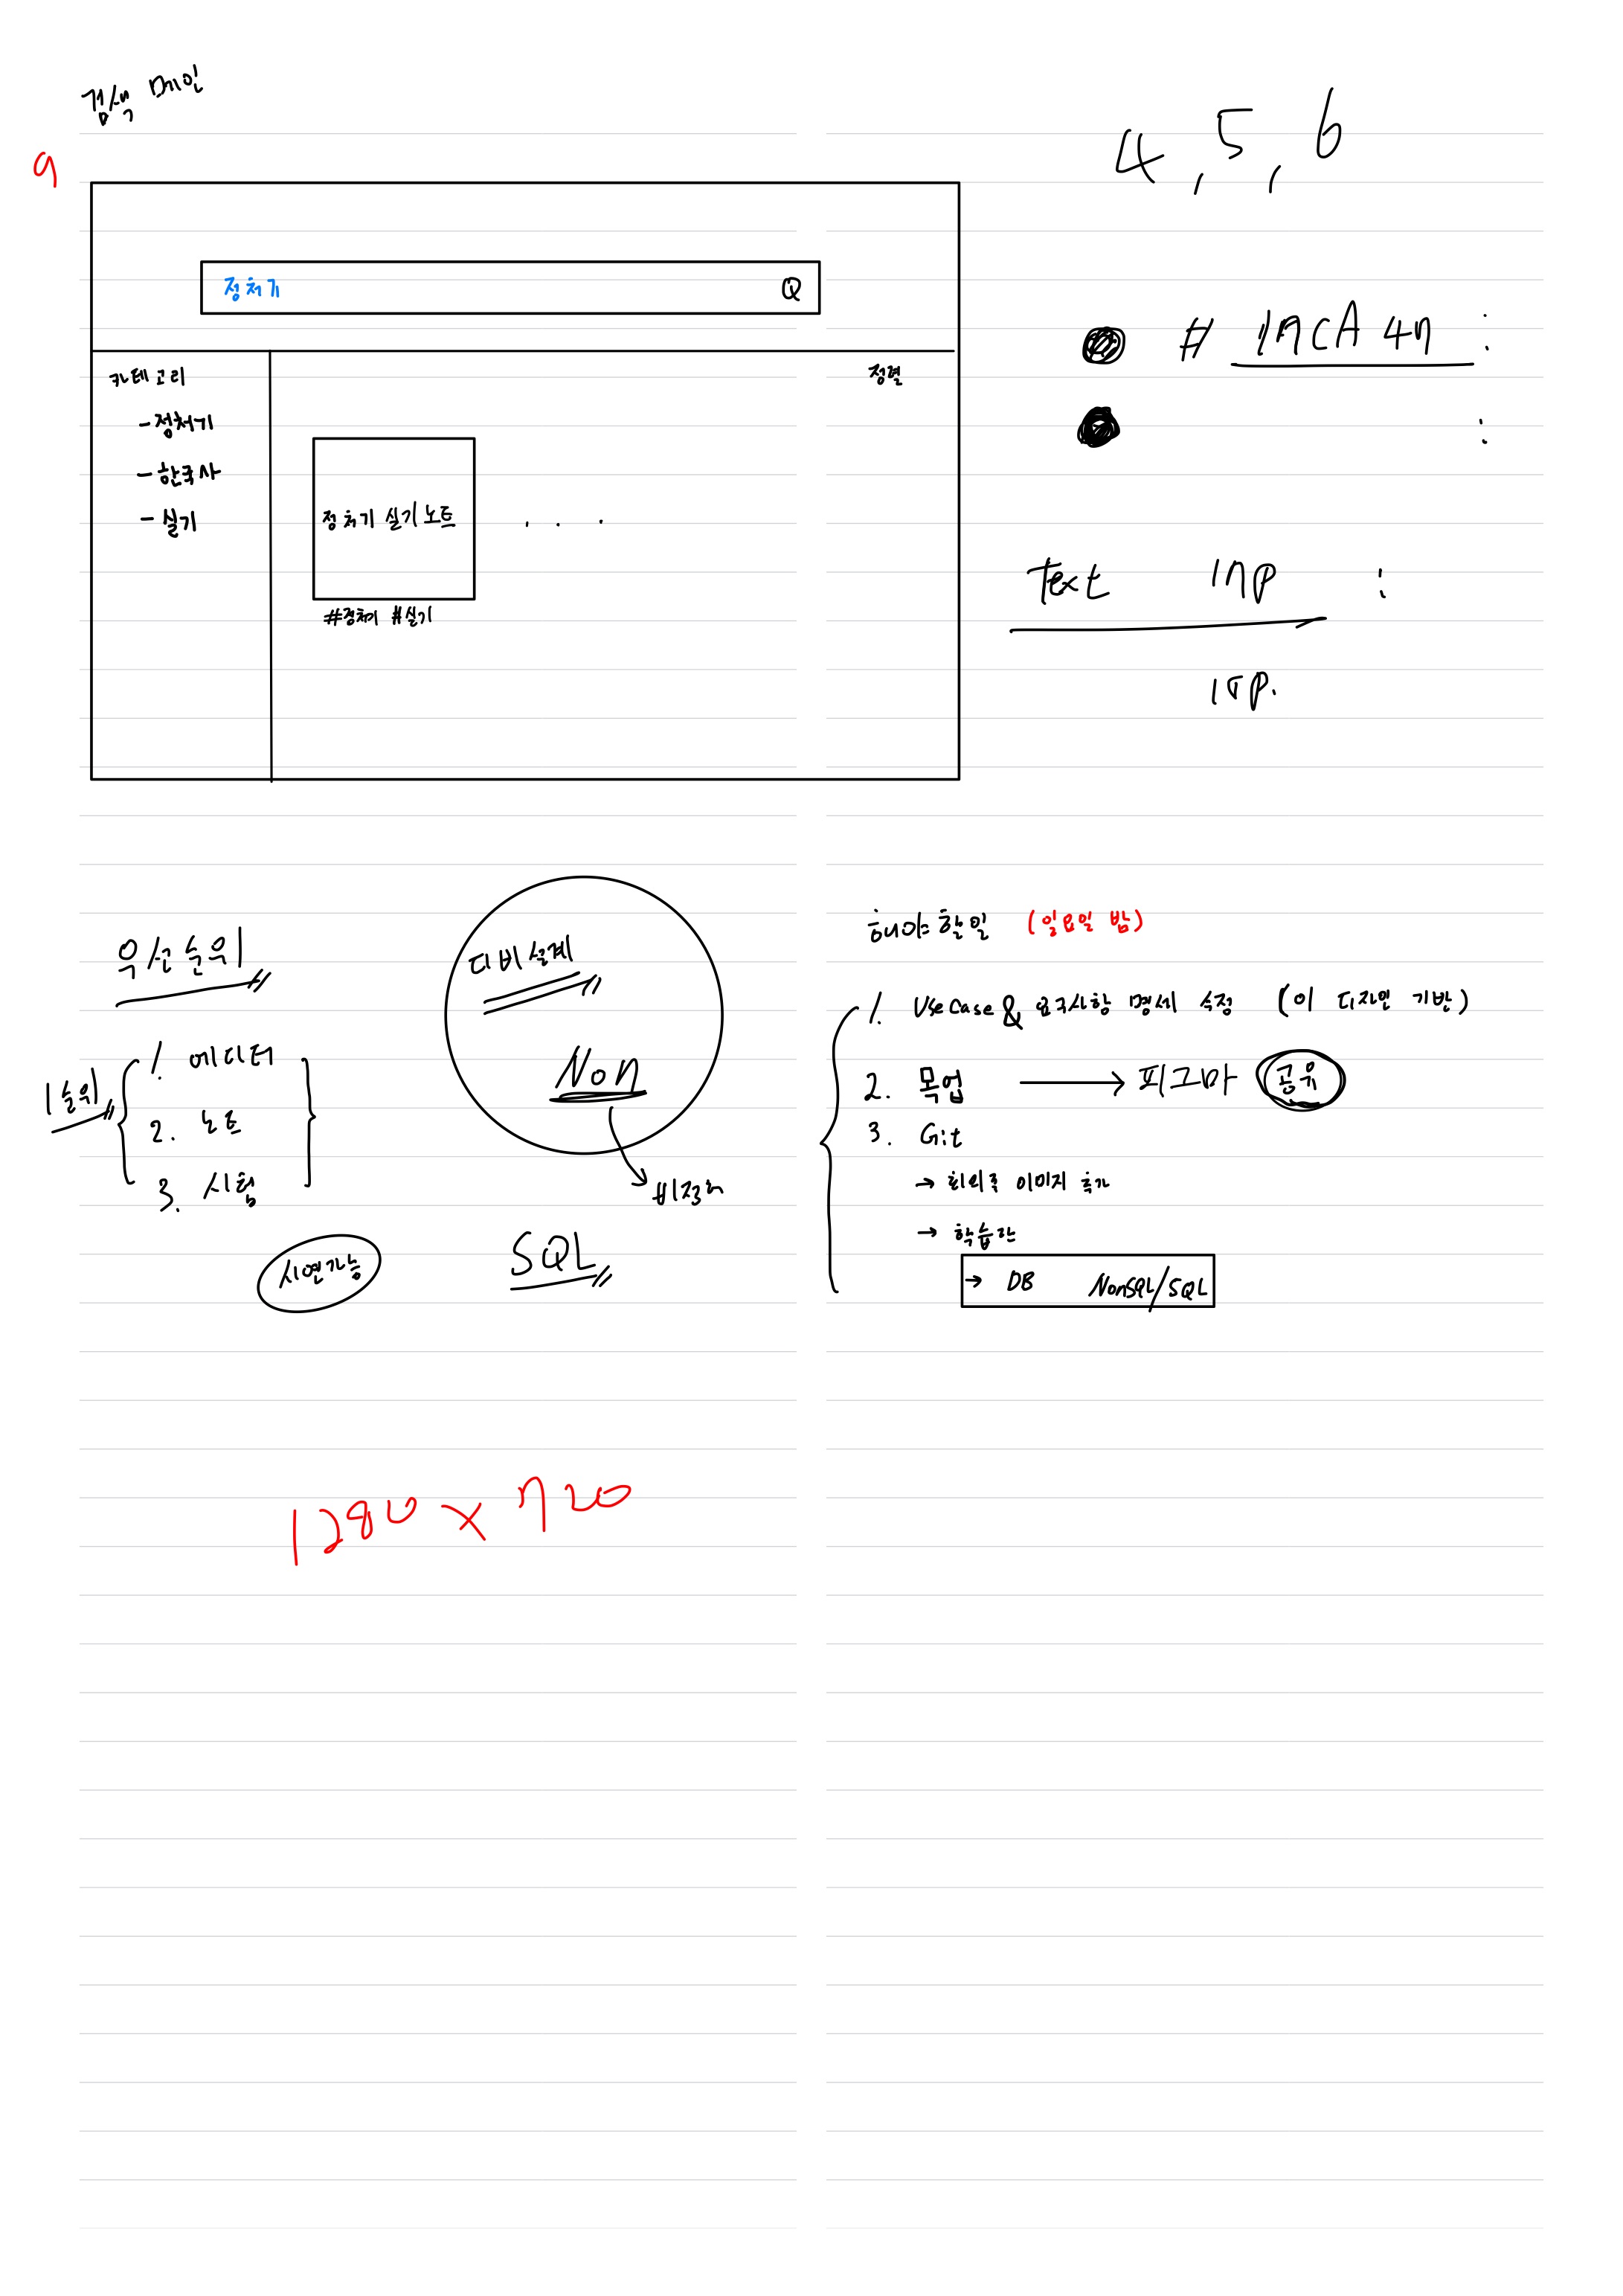 검색 메인
9
4, 5, 6
정처기 Q
카테고리
정렬
- 정처기
- 한국사
- 실기
정처기 실기 노트 . . .
#정처기 #실기
#
:
:
Text :
우선순위
1순위
1. 에디터
2. 노트
3. 시험
시연가능
디비설계
Non
SQL
해야할일 (일요일 밤)
1. Use Case & 요구사항 명세 수정 (이 디자인 기반)
2. 목업 → 피그마 공유
3. Git
→ 회의록 이미지 추가
→ 학습란
→ DB NonSQL/SQL
1280 x 720